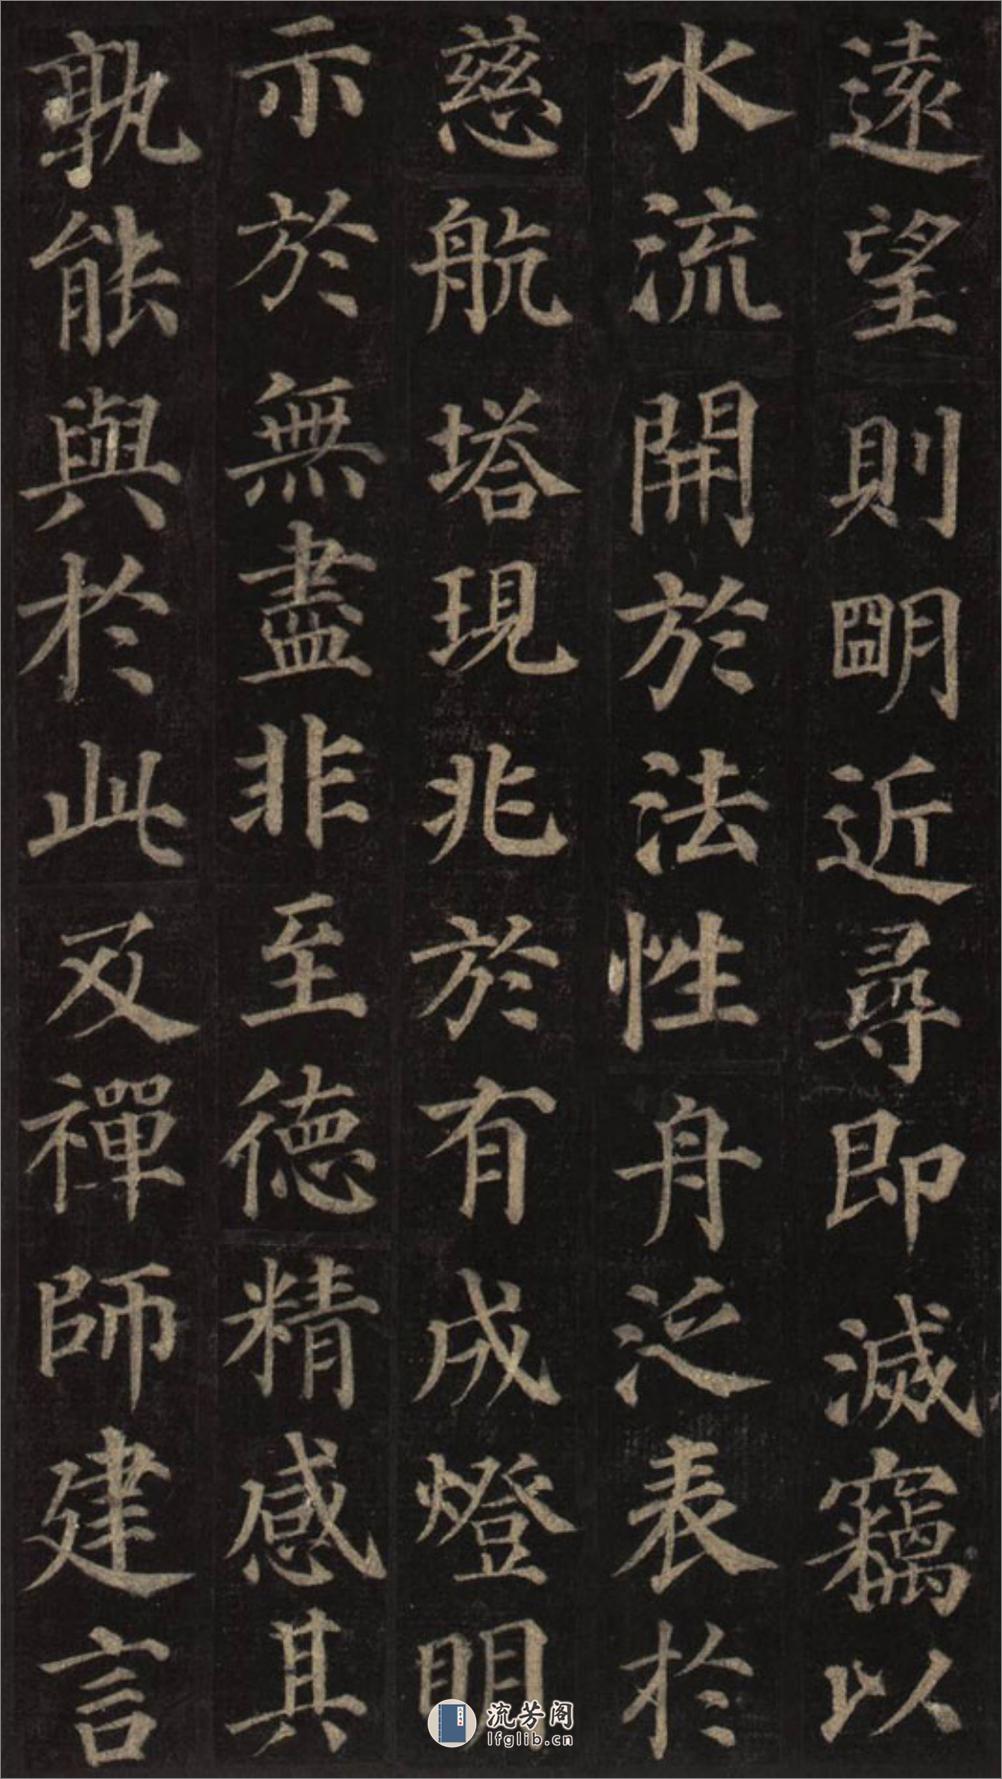 遠望則朙近尋即滅竊以
水流開於法性舟泛表於
慈航塔現兆於有成燈明
示於無盡非至德精感其
孰能與於此及禪師建言
流芳阁
lfglib.cn